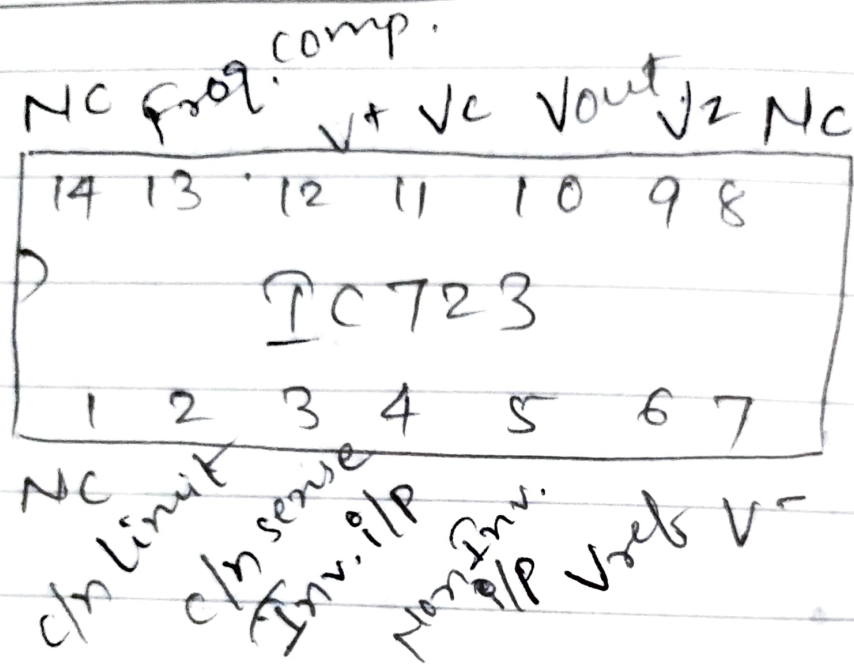 NC Freq. comp. V+ Vc Vout Vz NC
14 13 12 11 10 9 8
IC723
1 2 3 4 5 6 7
NC c/n limit c/n sense Inv. i/p Non Inv. i/p Vref V-